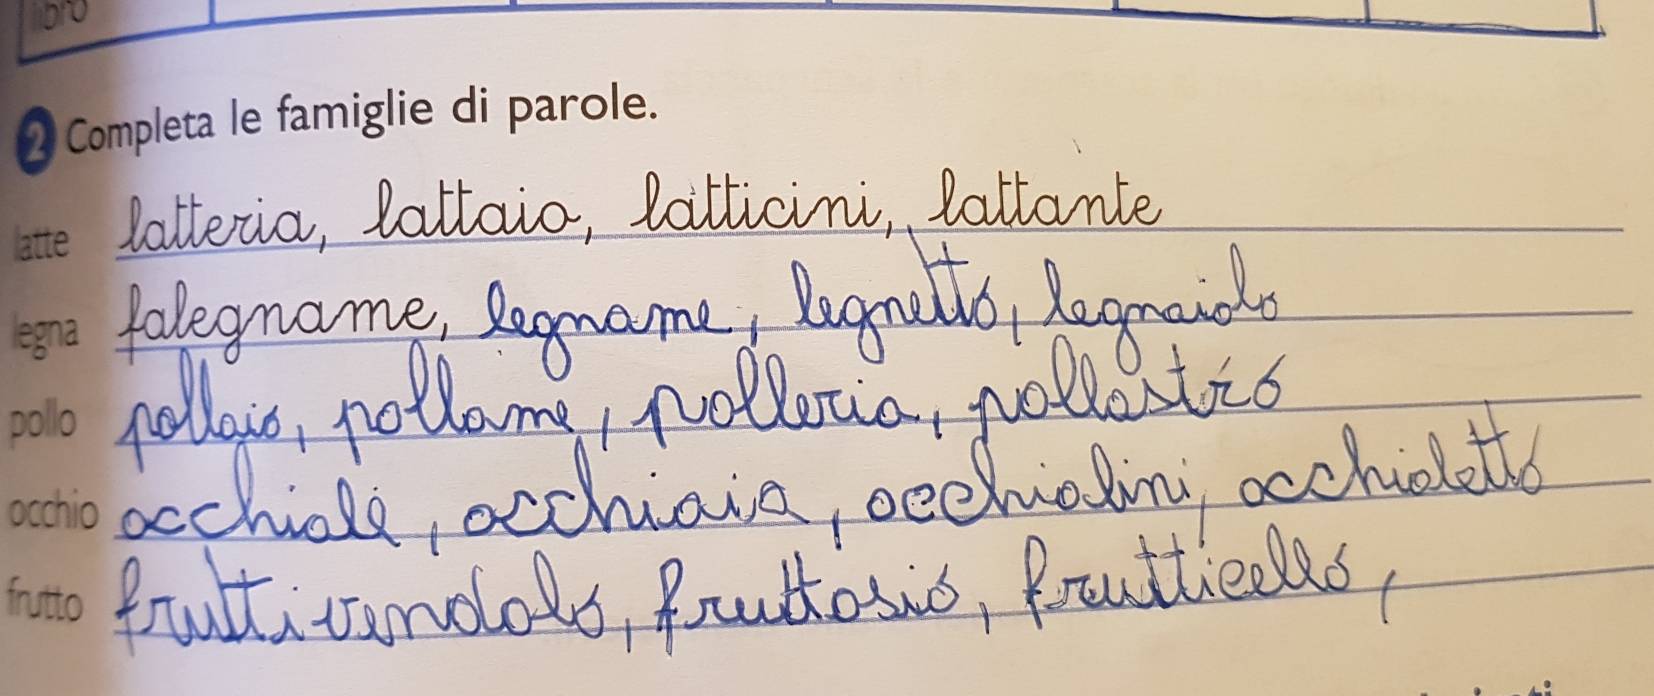 libro
2 Completa le famiglie di parole.
latte latteria, lattaio, latticini, lattante
legna falegname, legname, legnetto, legnaiolo
pollo pollaio, pollame, polleria, pollastro
occhio occhiale, occhiaia, occhiolini, occhioletto
frutto fruttivendolo, fruttosio, frutticello,